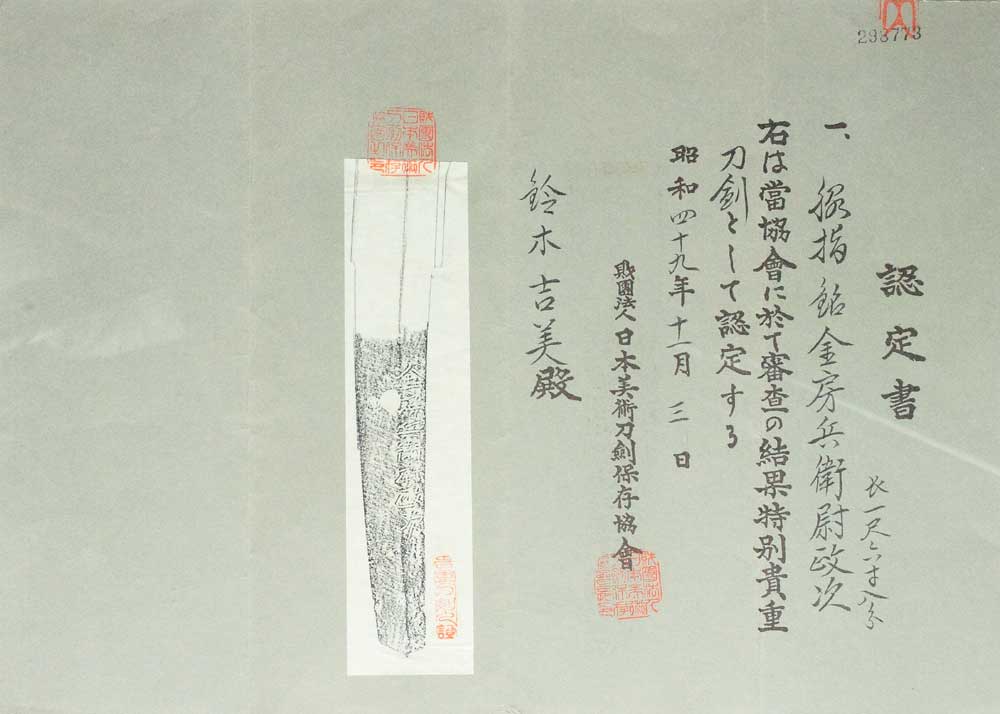 293773
認定書
一、脇指 銘金房兵衛尉政次
長一尺六寸八分
右は當協會に於て審査の結果特別貴重
刀劍として認定する
昭和四十九年十一月三日
財團法人日本美術刀劍保存協會
鈴木吉美殿